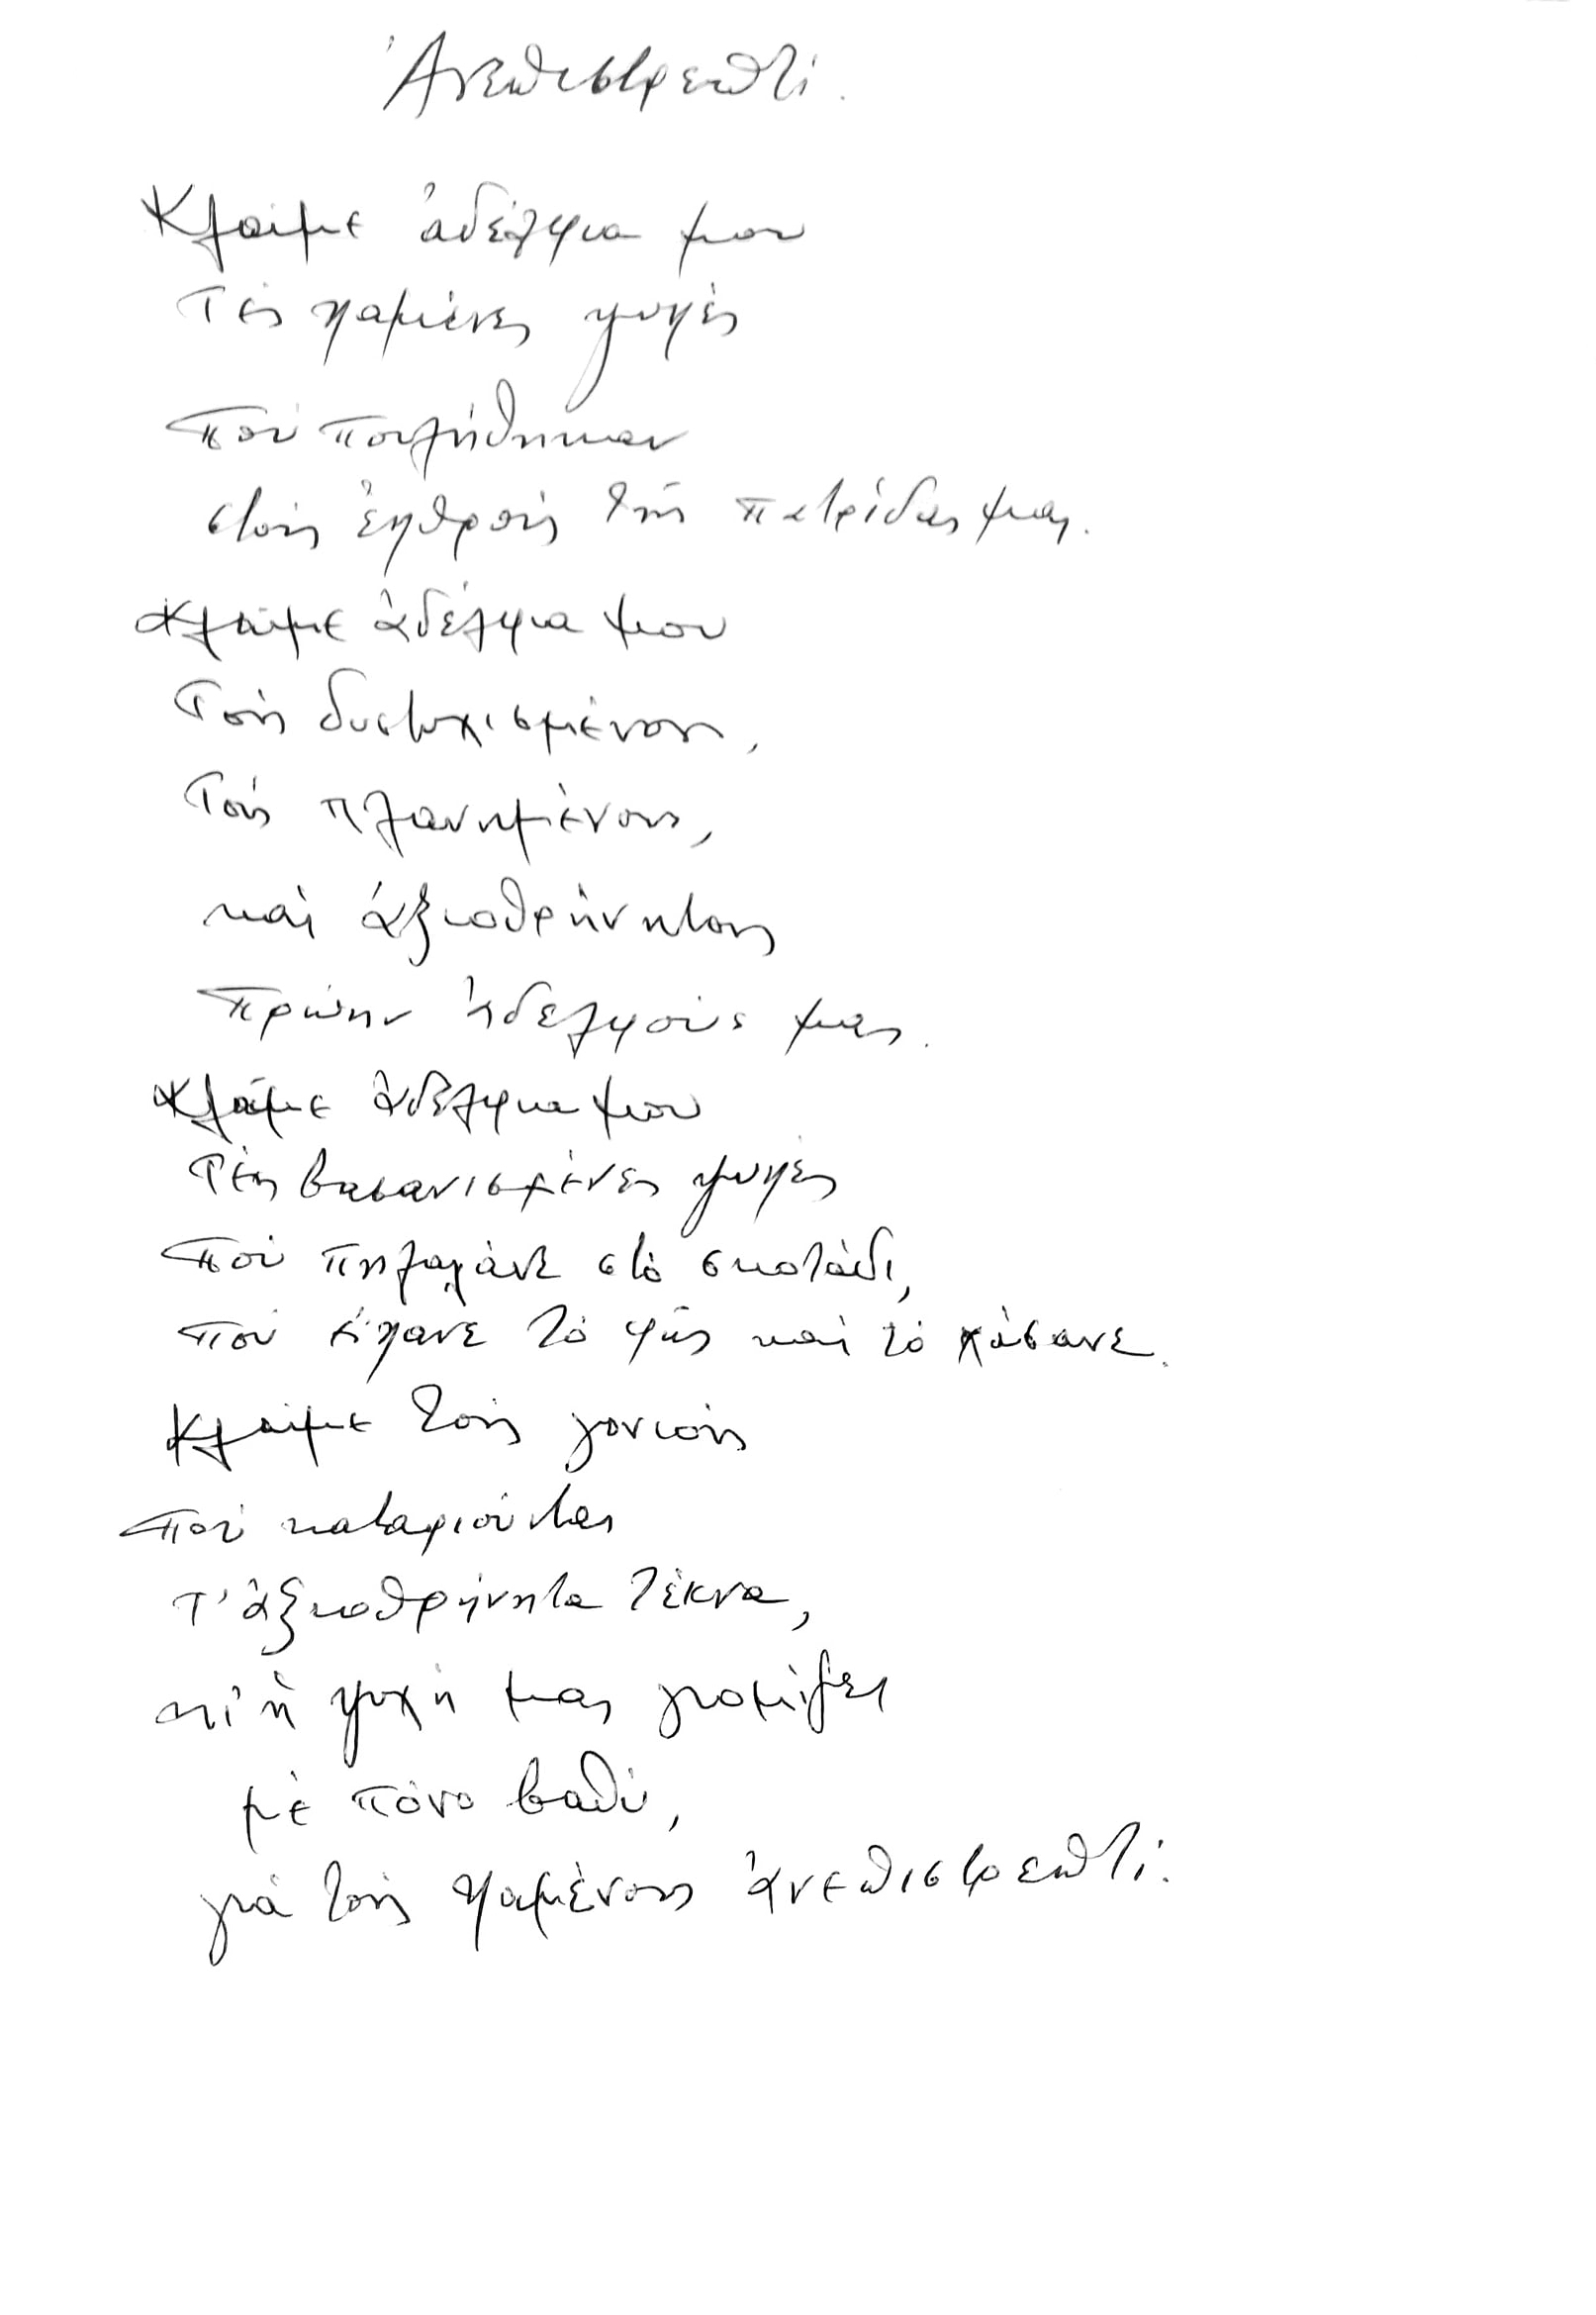 Ἀνεπιστρεπτί.
Κλαῖμε ἀδέλφια μου
τὲς χαμένες ψυχὲς
ποὺ πουλήθηκαν
στοὺς ἐχθροὺς τῆς πατρίδας μας.
Κλαῖμε ἀδέλφια μου
τοὺς δυστυχισμένους,
τοὺς πλανημένους,
καὶ ἀξιοθρήνητους
πρώην ἀδελφούς μας.
Κλαῖμε ἀδέλφια μου
τὲς βασανισμένες ψυχὲς
ποὺ πηλαλᾶνε στὸ σκοτάδι,
ποὺ εἴχανε τὸ φῶς καὶ τὸ χάσανε.
Κλαῖμε τοὺς γονιοὺς
ποὺ καταριοῦνται
τ' ἀξιοθρήνητα τέκνα,
κι' ἡ ψυχή μας γιομίζει
μὲ πόνο βαθύ,
γιὰ τοὺς χαμένους ἀνεπιστρεπτί.